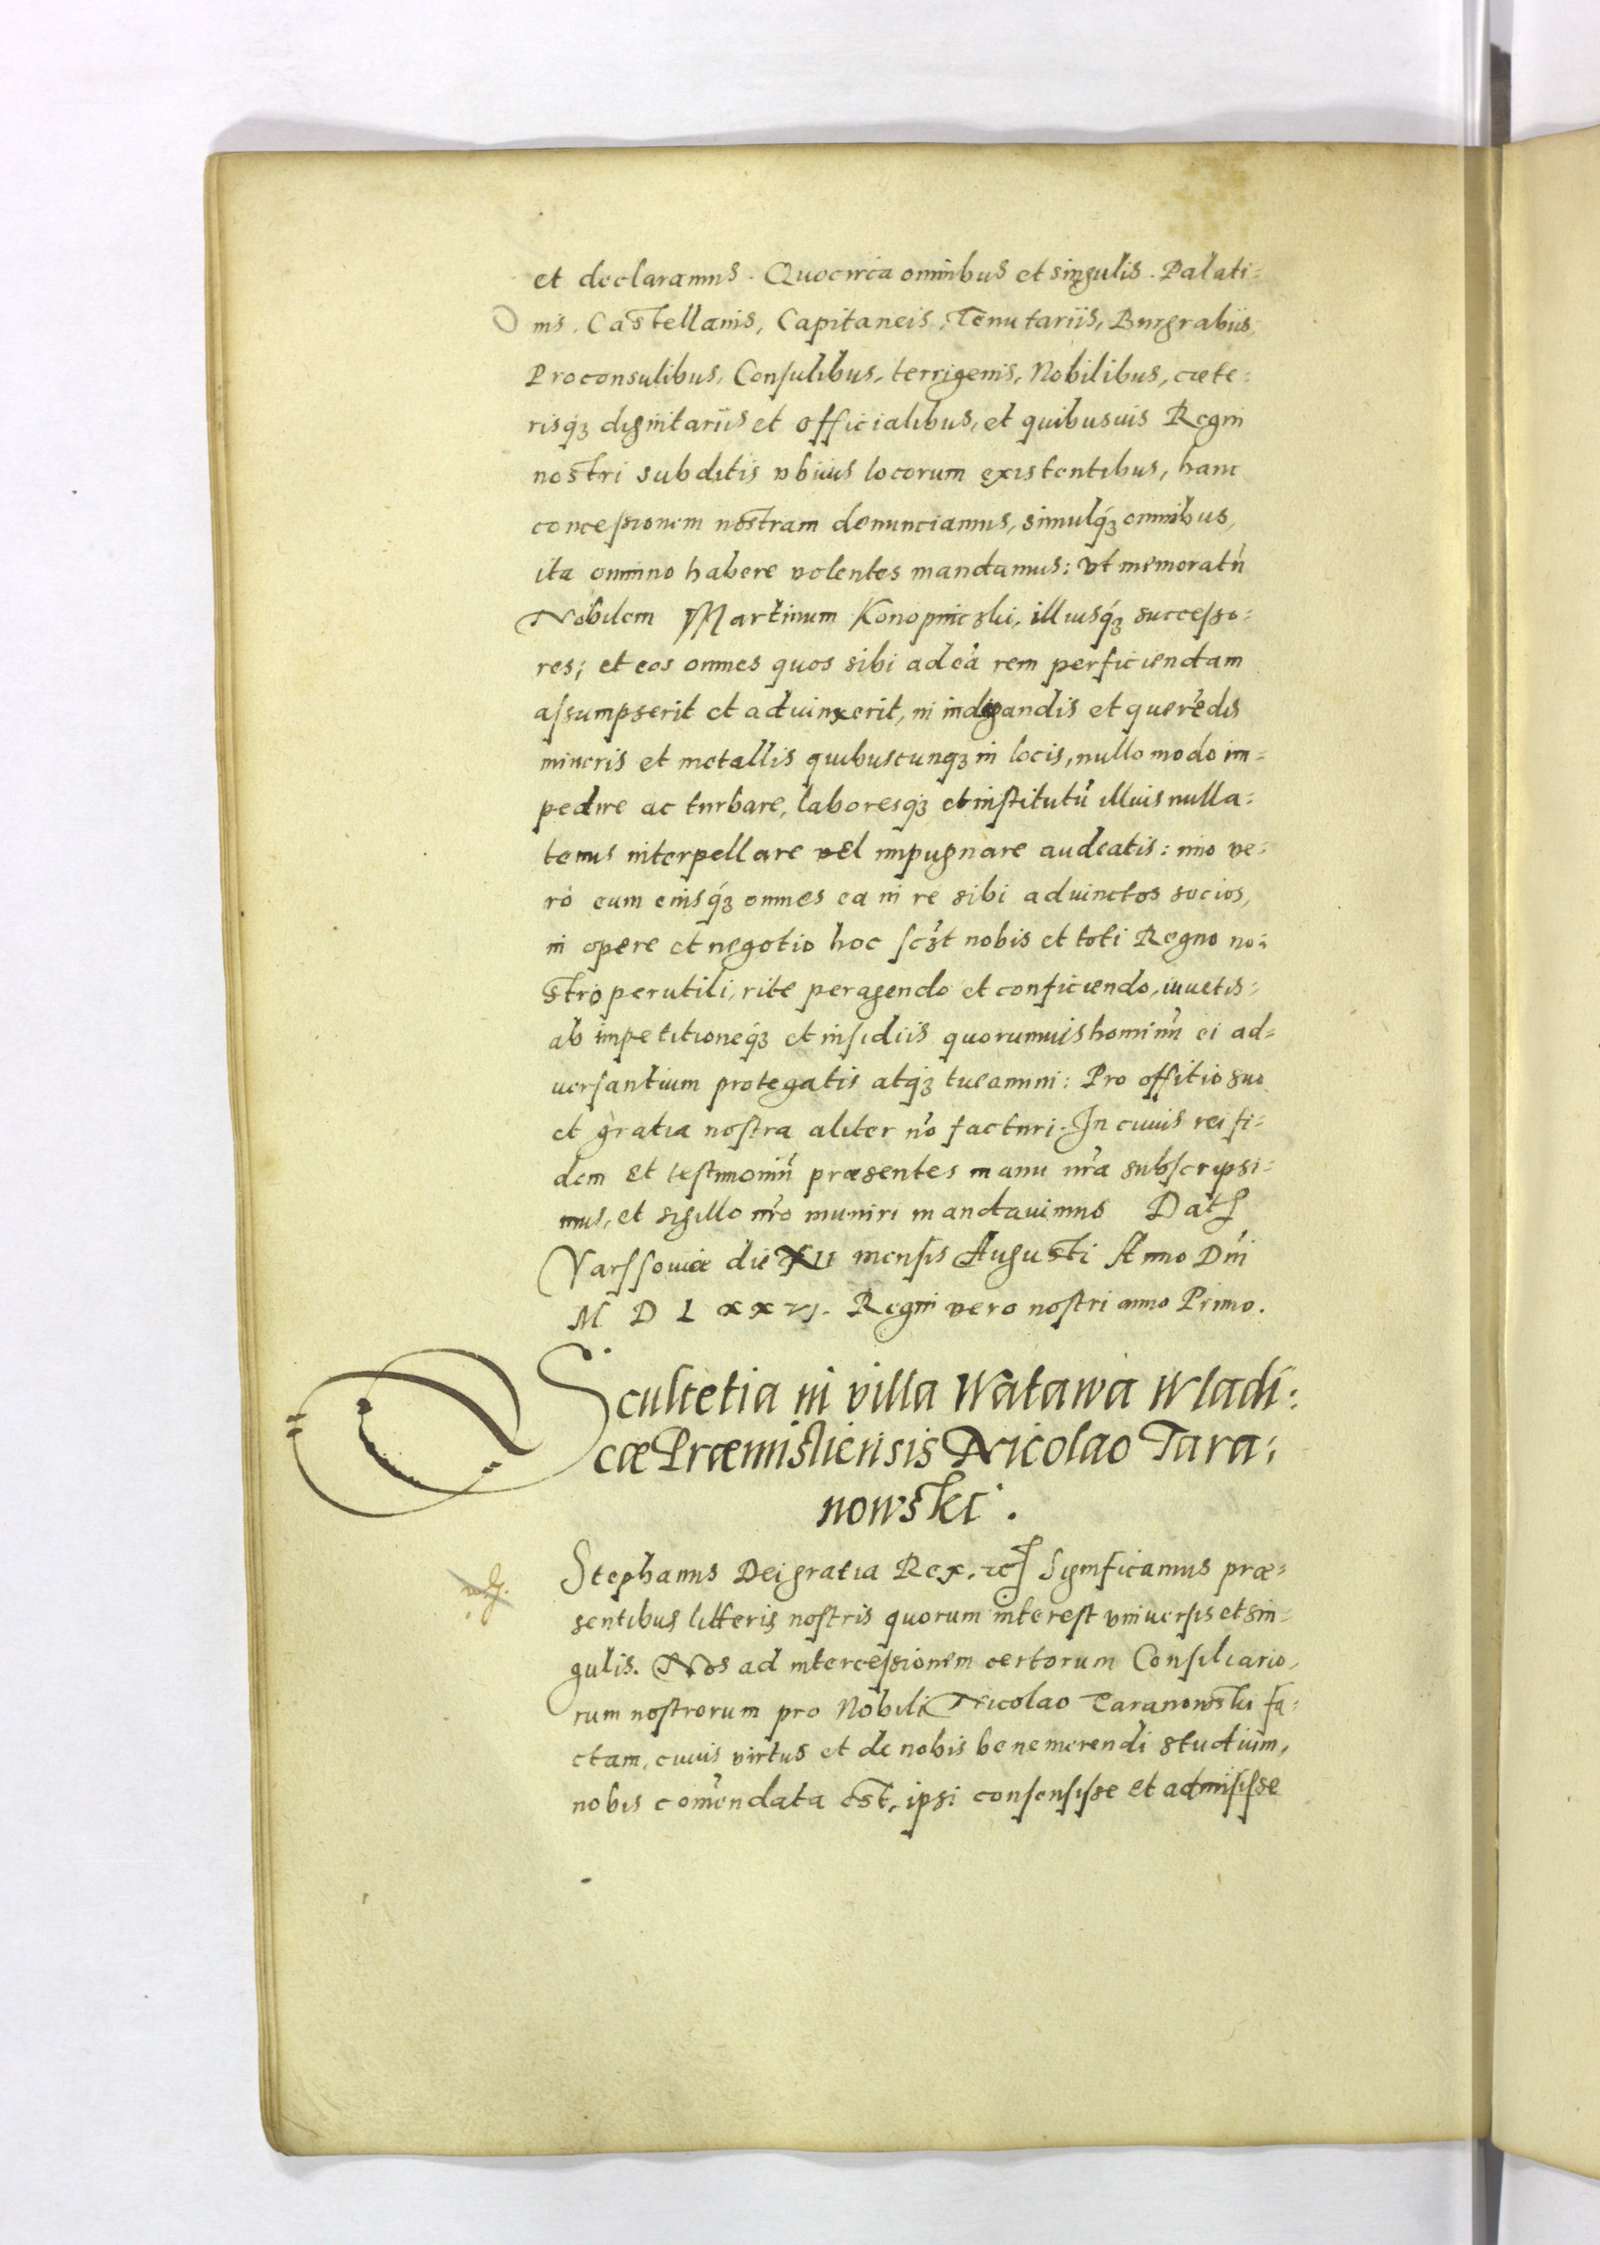 et declaramus. Quocirca omnibus et singulis. Palati=
nis. Castellanis, Capitaneis, Tenutariis, Burgrabiis,
Proconsulibus, Consulibus, terrigenis, Nobilibus, cæte=
risq́ꝫ dignitariis et officialibus, et quibusuis Regni
nostri subditis vbiuis locorum existentibus, hanc
concessionem nostram denunciamus, simulq́ꝫ omnibus,
ita omnino habere volentes mandamus: vt memoratũ
Nobilem Martinum Konopniczki, illiusq́ꝫ successo=
res; et eos omnes quos sibi ad eã rem perficiendam
assumpserit et aduinxerit, in indagandis et querẽdis
mineris et metallis quibuscunqꝫ in locis, nullo modo im=
pedire ac turbare, laboresqꝫ et institutũ illius nulla=
tenus interpellare vel impugnare audeatis: imo ve=
rò eum eiusq́ꝫ omnes ea in re sibi aduinctos socios,
in opere et negotio hoc scꝫt nobis et toti Regno no=
stro perutili, rite peragendo et conficiendo, iuuetis:
ab impetitioneq́ꝫ et insidiis quorumuis hominũ ei ad=
uersantium protegatis atq́ꝫ tueamini: Pro offitio suo
et gratia nostra aliter nõ facturi. In cuius rei fi=
dem et testimoniũ præsentes manu nr̃a subscripsi=
mus, et sigillo nr̃o muniri mandauimus Datꝭ
Varssouiæ die XII mensis Augusti Anno Dñi
M D L XXVI. Regni vero nostri anno Primo.
Scultetia in villa Watawa Wladi:
cæ Præmisliensis Nicolao Tara:
nowski.
Stephanus Dei gratia Rex. ꝛcꝭ Significamus præ=
sentibus litteris nostris quorum interest vniuersis et sin=
gulis. Nos ad intercessionem certorum Consiliario,
rum nostrorum pro Nobili Nicolao Taranowski fa=
ctam, cuius virtus et de nobis bene merendi studium,
nobis com̃endata est, ipsi consensisse et admisisse